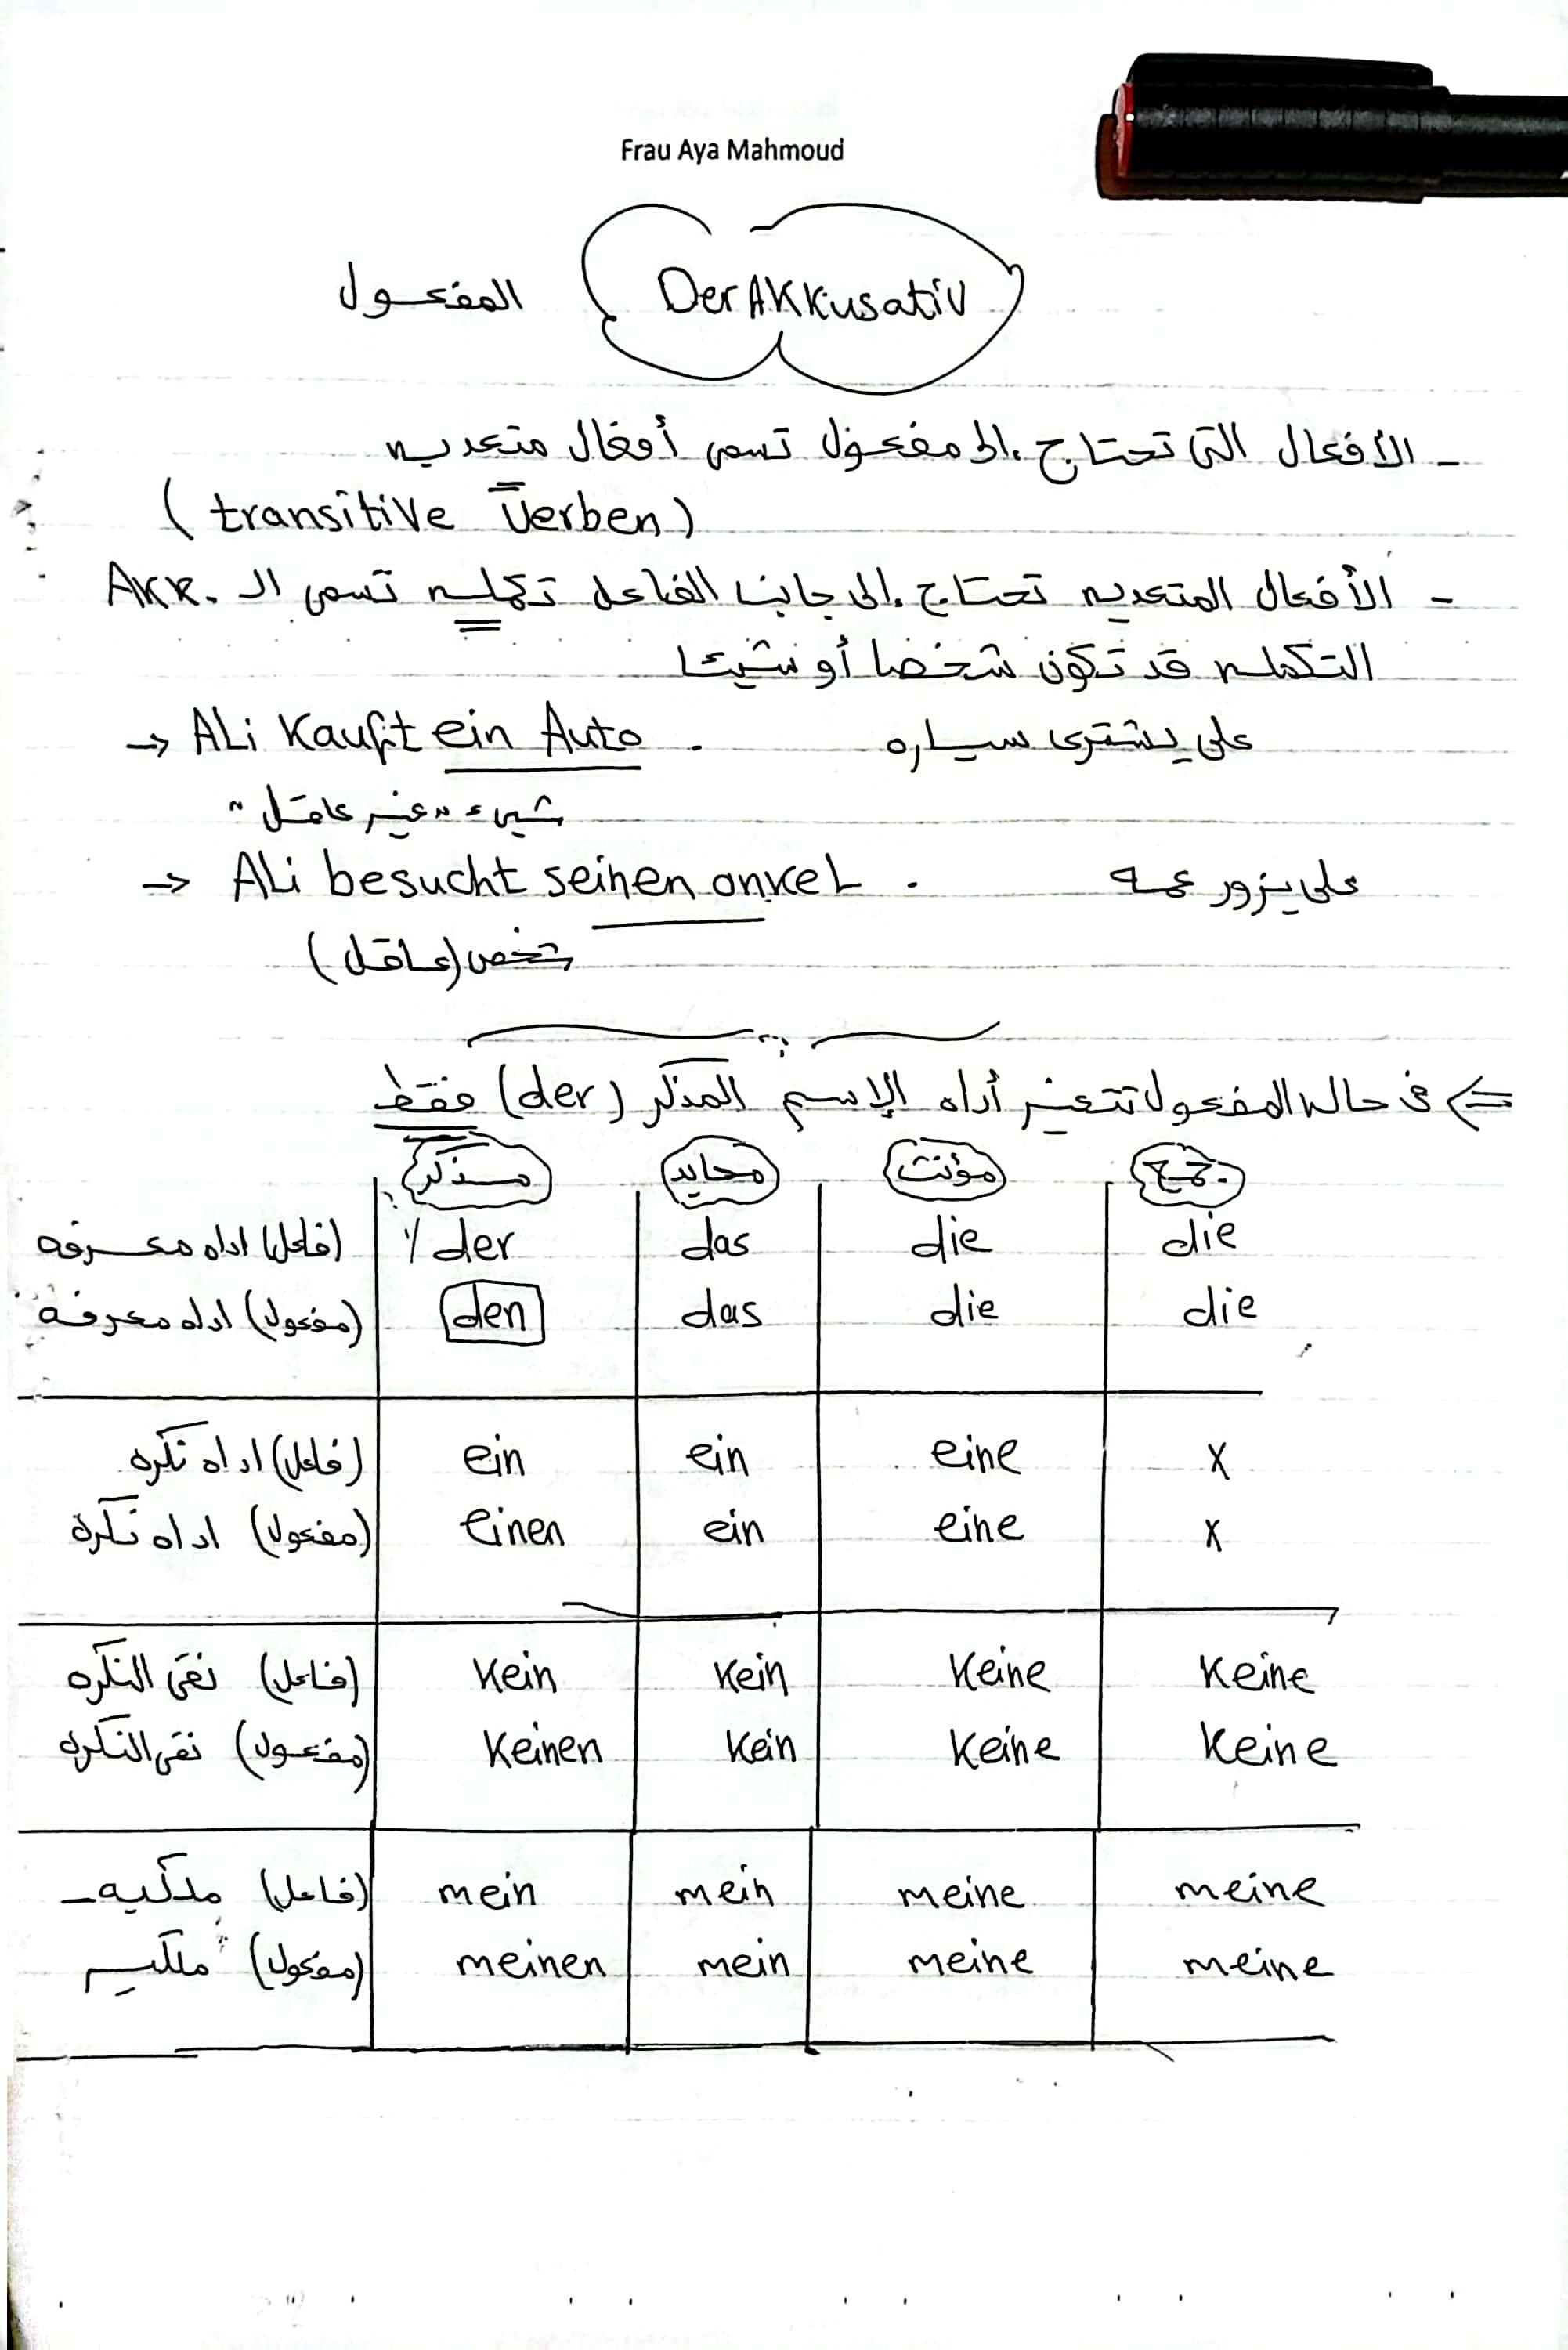 Frau Aya Mahmoud
Der AKKusativ المفعول
- الأفعال التى تحتاج إلى مفعول تسمى أفعال متعديه
(transitive Verben)
- الأفعال المتعديه تحتاج إلى جانب الفاعل تكمله تسمى الـ AKK.
التكمله قد تكون شخصا أو شيئا
→ ALi Kauft ein Auto . على يشترى سياره
شىء "غير عاقل"
→ ALi besucht seinen onkeL . على يزور عمه
شخص (عاقل)
⇐ فى حاله المفعول تتغير أداه الإسم المذكر (der) فقط
مذكر محايد مؤنث جمع
(فاعل) اداه معرفه der das die die
(مفعول) اداه معرفة den das die die
(فاعل) اداه نكره ein ein eine x
(مفعول) اداه نكرة einen ein eine x
(فاعل) نفى النكره Kein Kein Keine Keine
(مفعول) نفى النكره Keinen Kein Keine Keine
(فاعل) ملكيه mein mein meine meine
(مفعول) ملكيه meinen mein meine meine